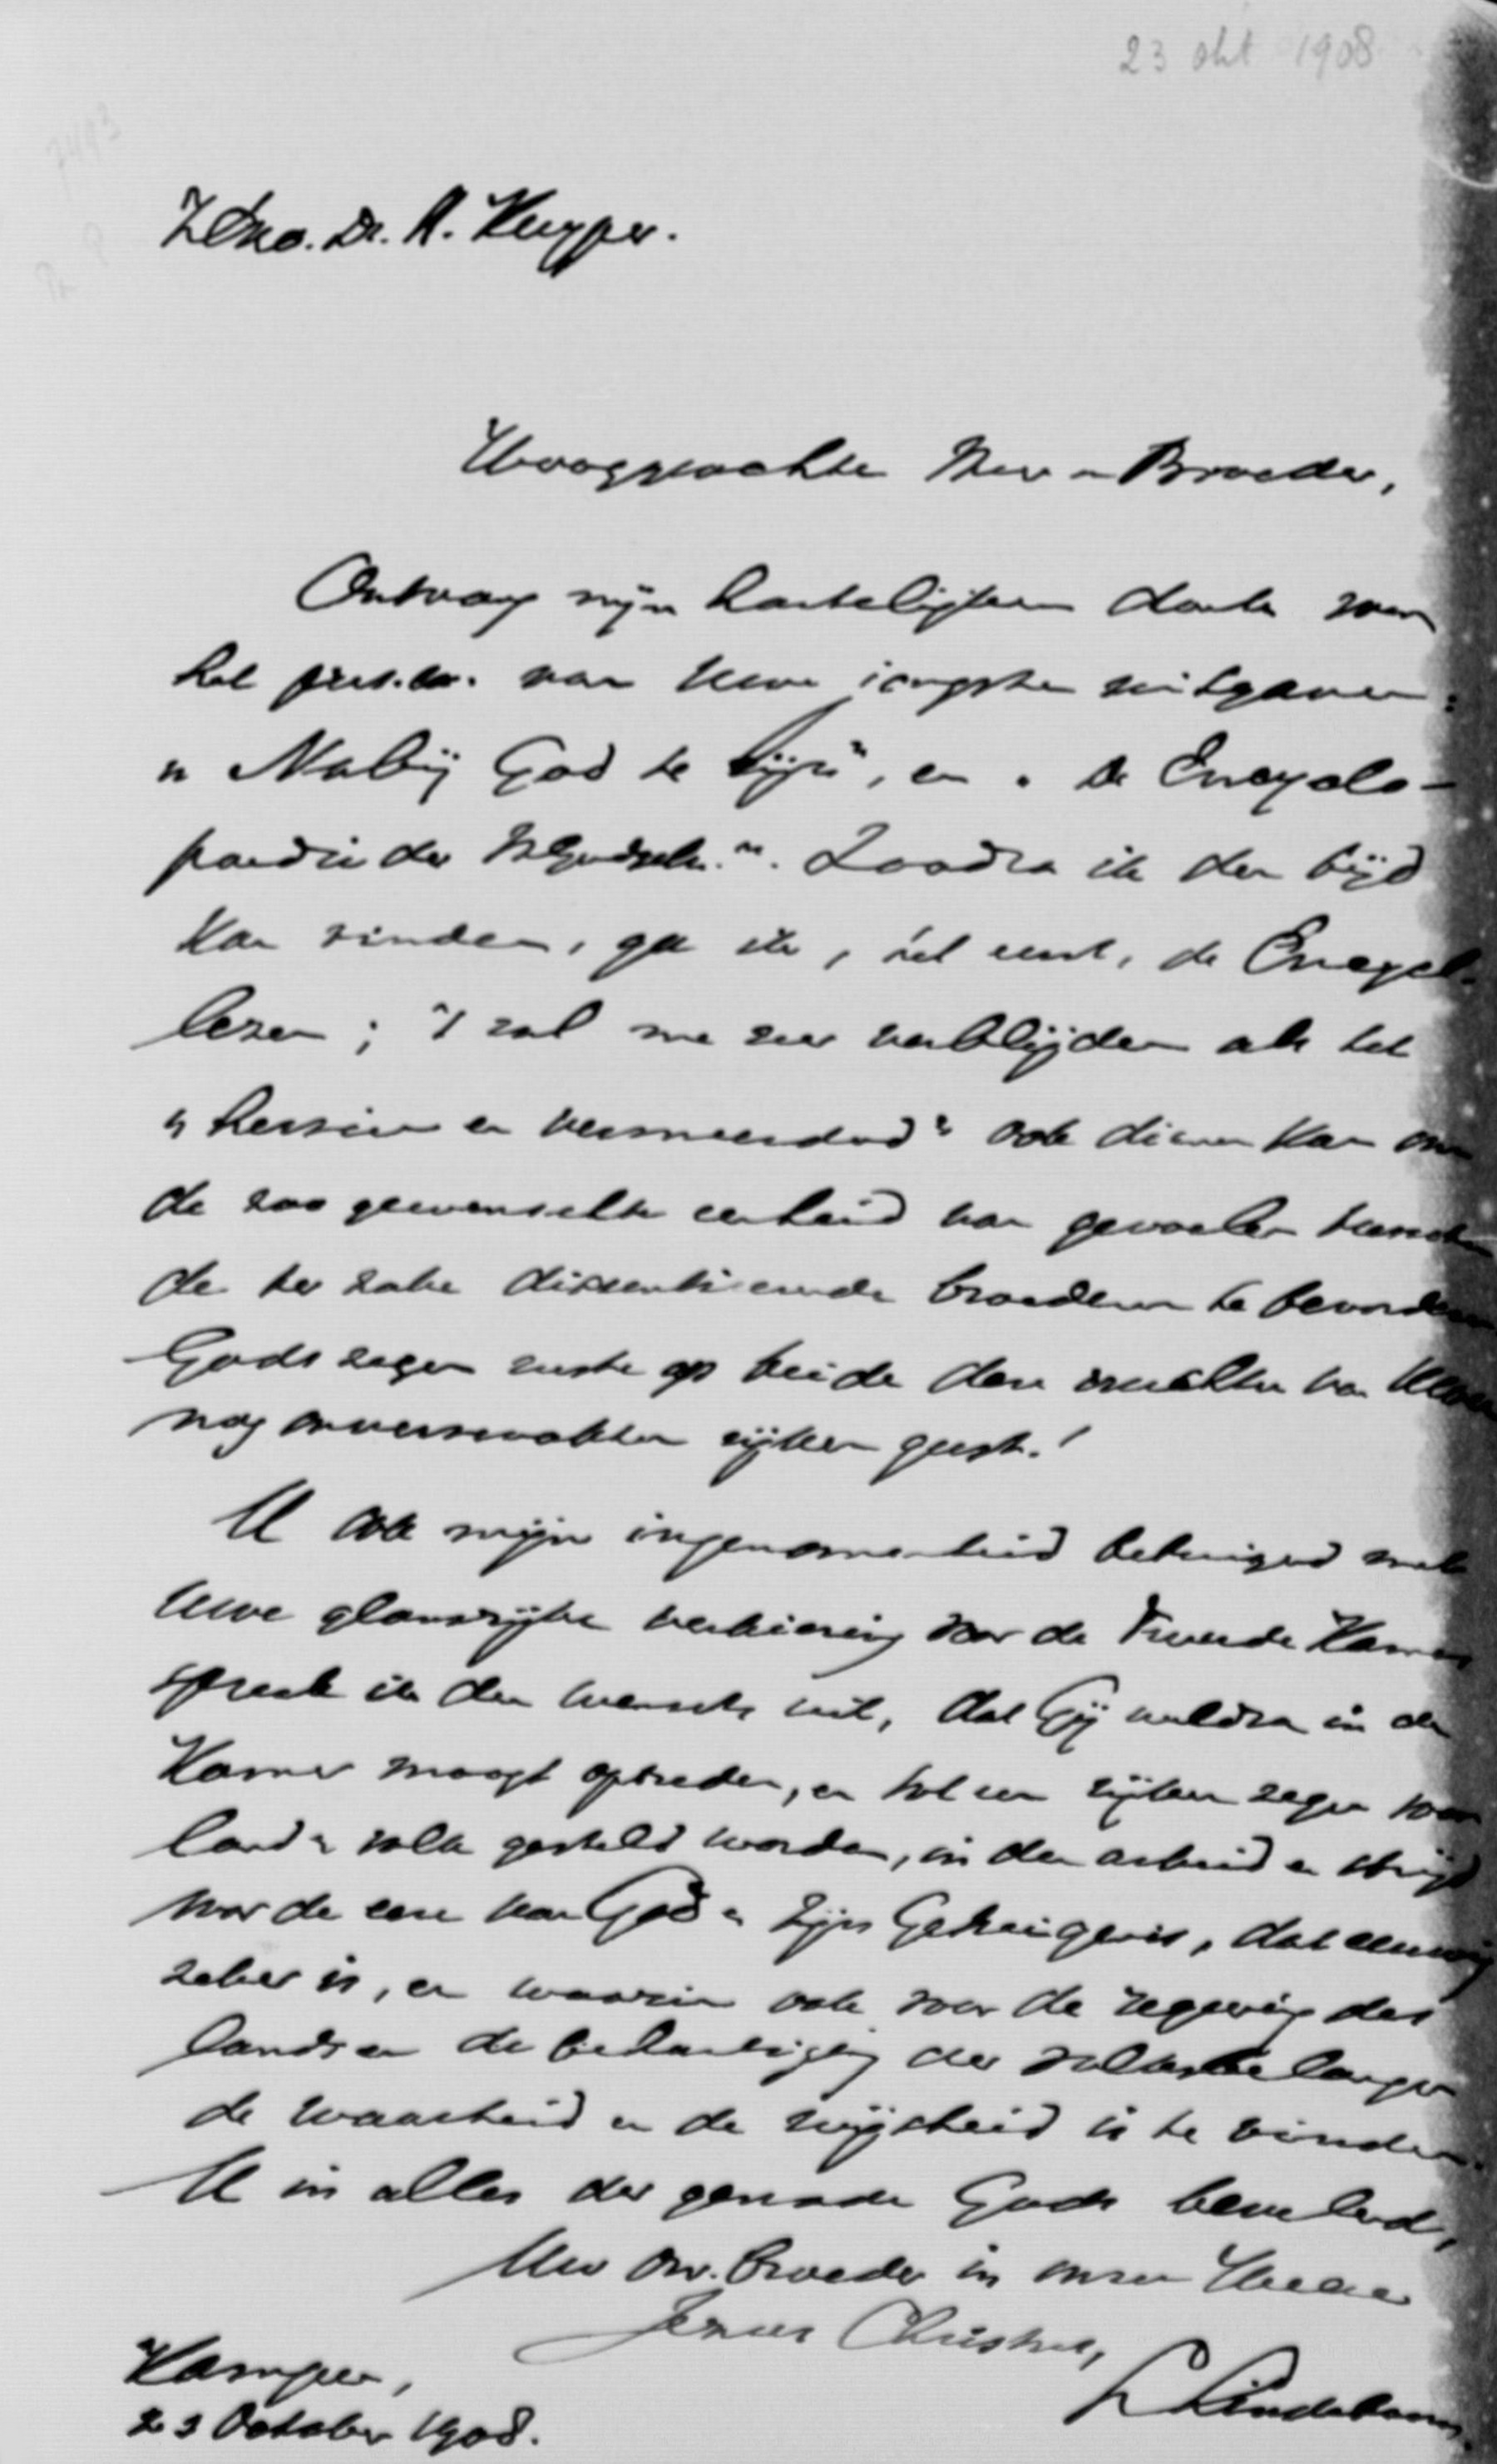 23 okt 1908
7493
ZExc. Dr. A. Kuyper.
Hooggeachte Heer en Broeder,
Ontvang mijn hartelijken dank voor
het pres.ex. van Uwe jongste uitgaven:
„Nabij God te zijn", en „De Encyclo-
paedie der H. Godgeleerdh.". Zoodra ik den tijd
kan vinden, ga ik, het eerst, de Encycl.
lezen; 't zal me zeer verblijden als het
„herzien en vermeerderd" ook dienen kan om
de zoo gewenschte eenheid van gevoelen tusschen
de ter zake dissentieerende broederen te bevorderen
Gods zegen ruste op beide deze vruchten van Uwen
nog onverzwakten rijken geest!
U ook mijn ingenomenheid betuigend met
Uwe glansrijke verkiezing voor de Tweede Kamer
spreek ik den wensch uit, dat Gij weldra in de
Kamer moogt optreden, en tot een rijken zegen voor
land en volk gesteld worden, in den arbeid en strijd
voor de eere van God en Zijn Getuigenis, dat eeuwig
zeker is, en waarin ook voor de regeering des
lands en de behartiging der volksbelangen
de waarheid en de wijsheid is te vinden.
U in alles der genade Gods bevelend,
Uw dw. broeder in onzen Heere
Jezus Christus,
L Lindeboom.
Kampen,
23 October 1908.